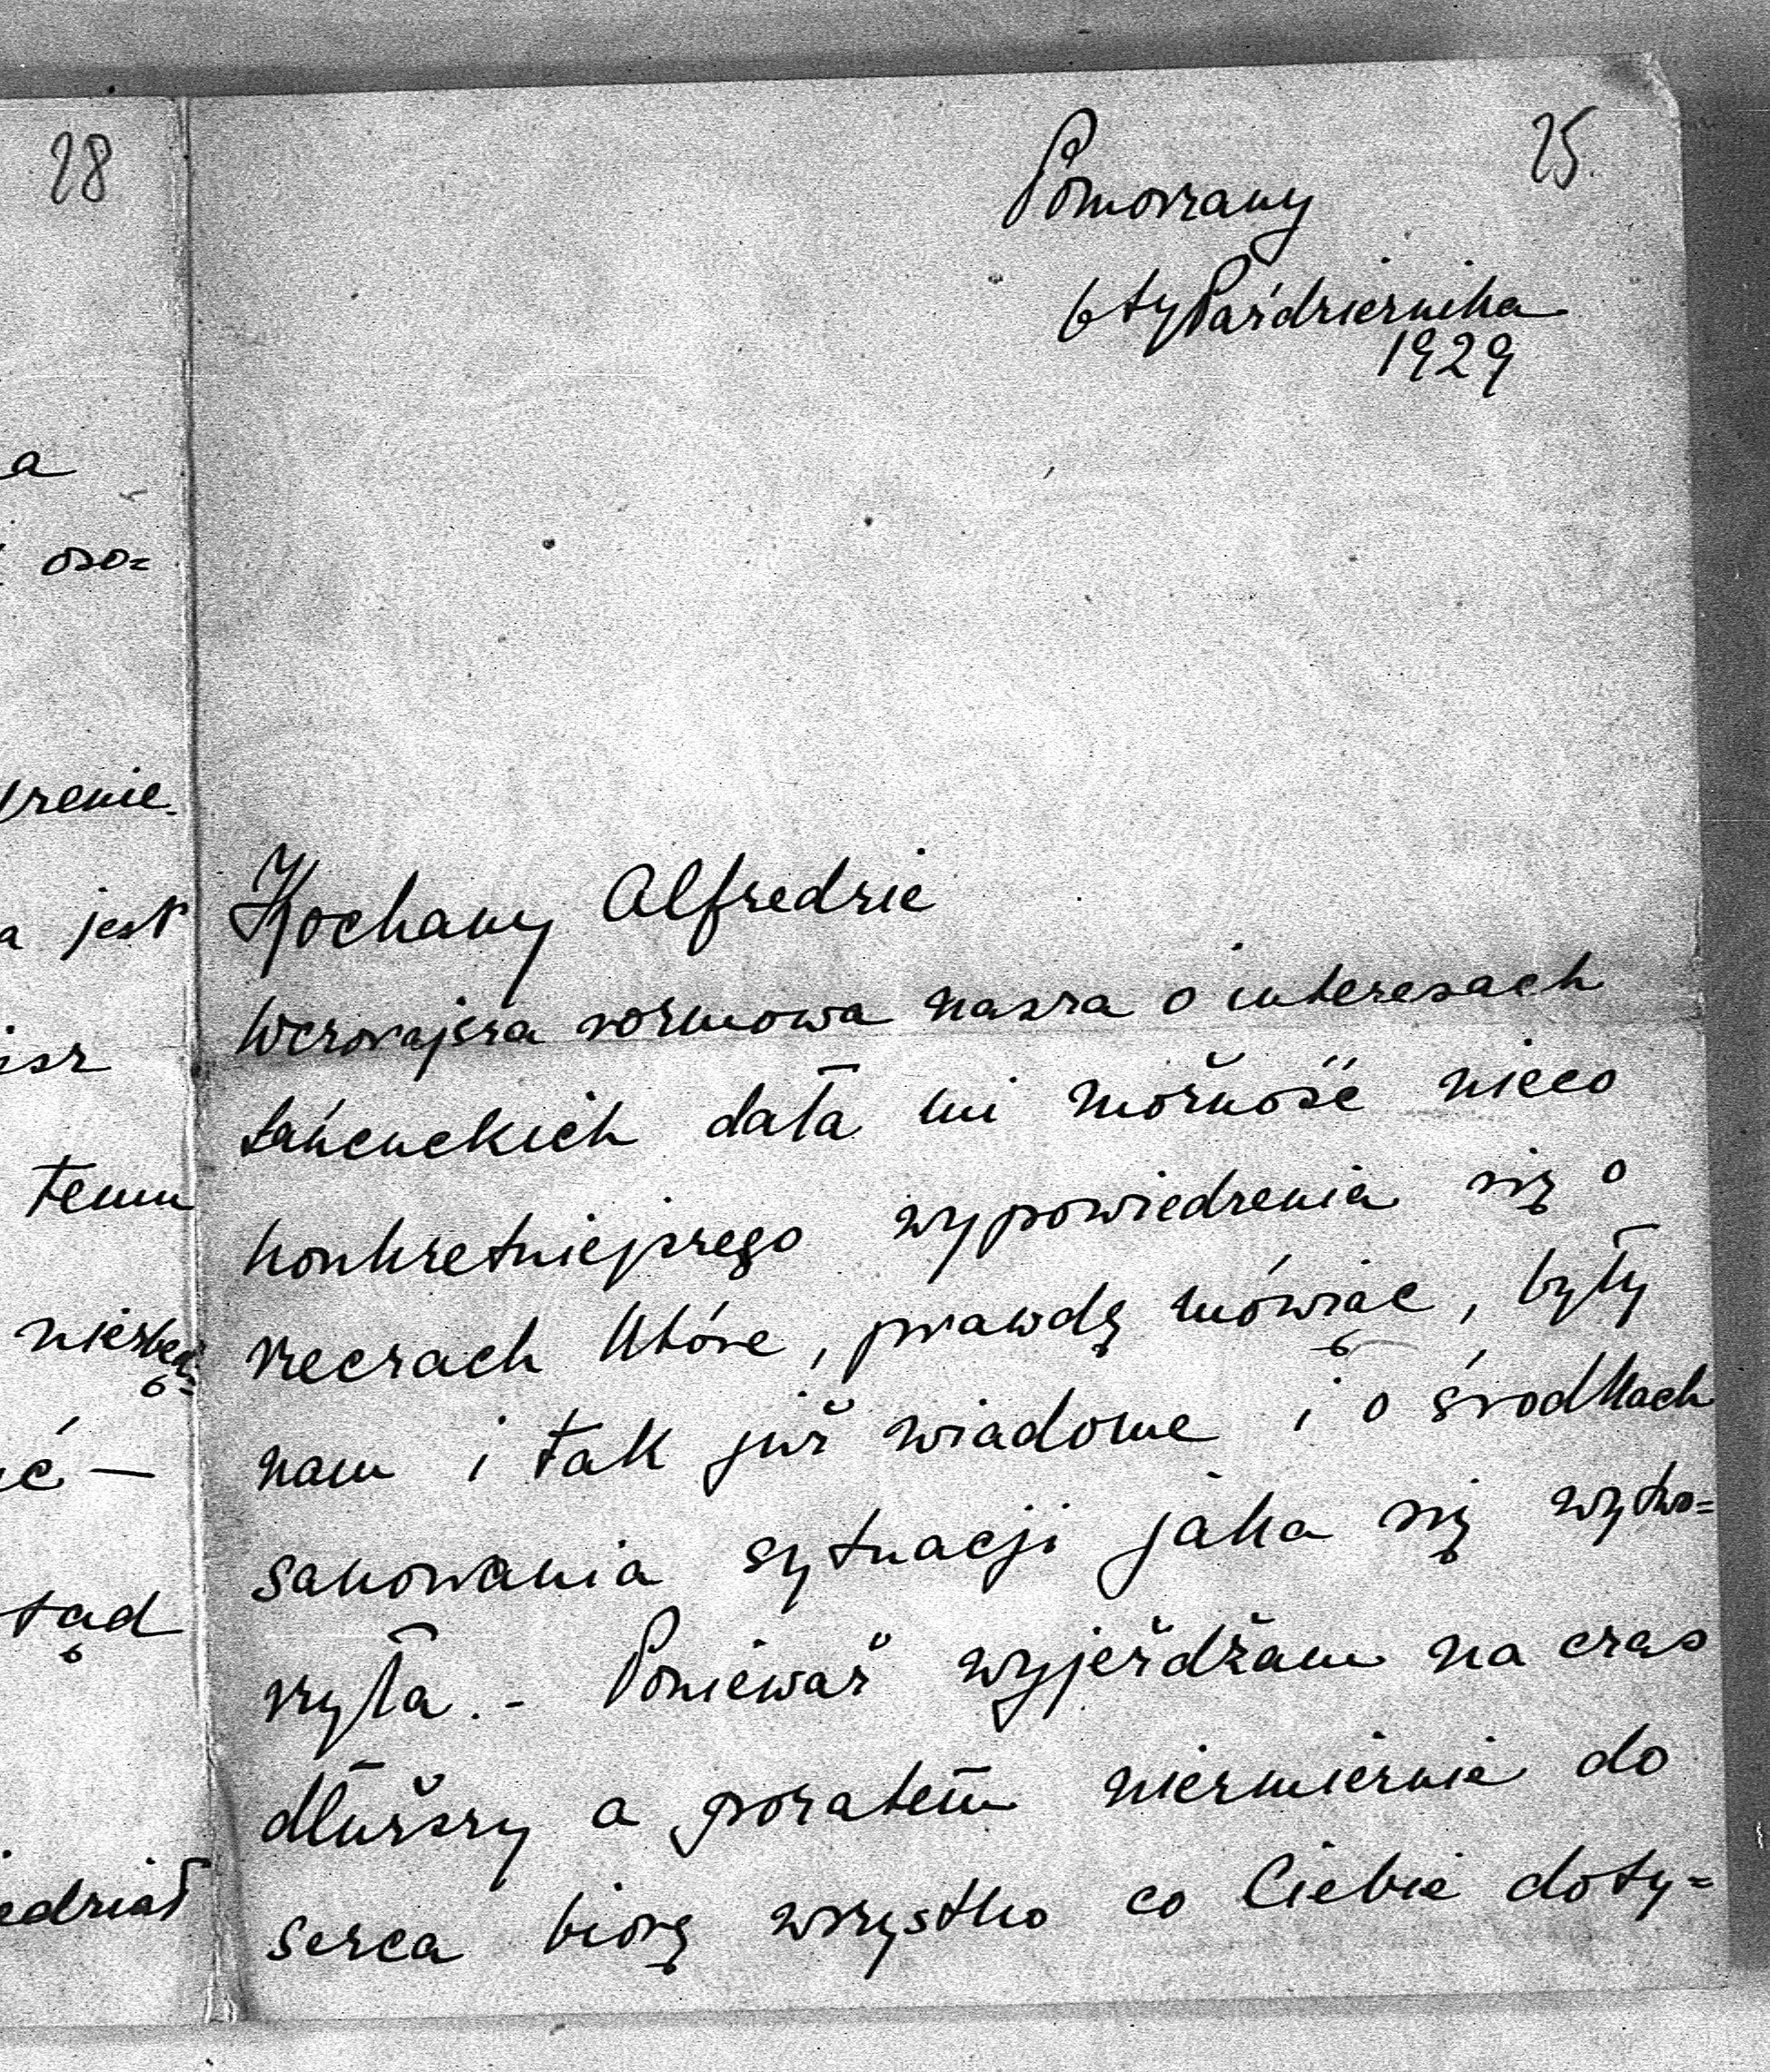 28
a
oso=
rzenie.
a jest
isz
temu
niezbęd=
ć —
tąd
edział
25.
Pomorzany
6ty Października
1929
Kochany Alfredzie
Wczorajsza rozmowa nasza o interesach
Łańcuckich dała mi możność nieco
konkretniejszego wypowiedzenia się o
rzeczach które, prawdę mówiąc, były
nam i tak już wiadome i o środkach
sanowania sytuacji jaka się wytwo=
rzyła. - Ponieważ wyjeżdżam na czas
dłuższy a pozatem niezmiernie do
serca biorę wszystko co Ciebie doty=